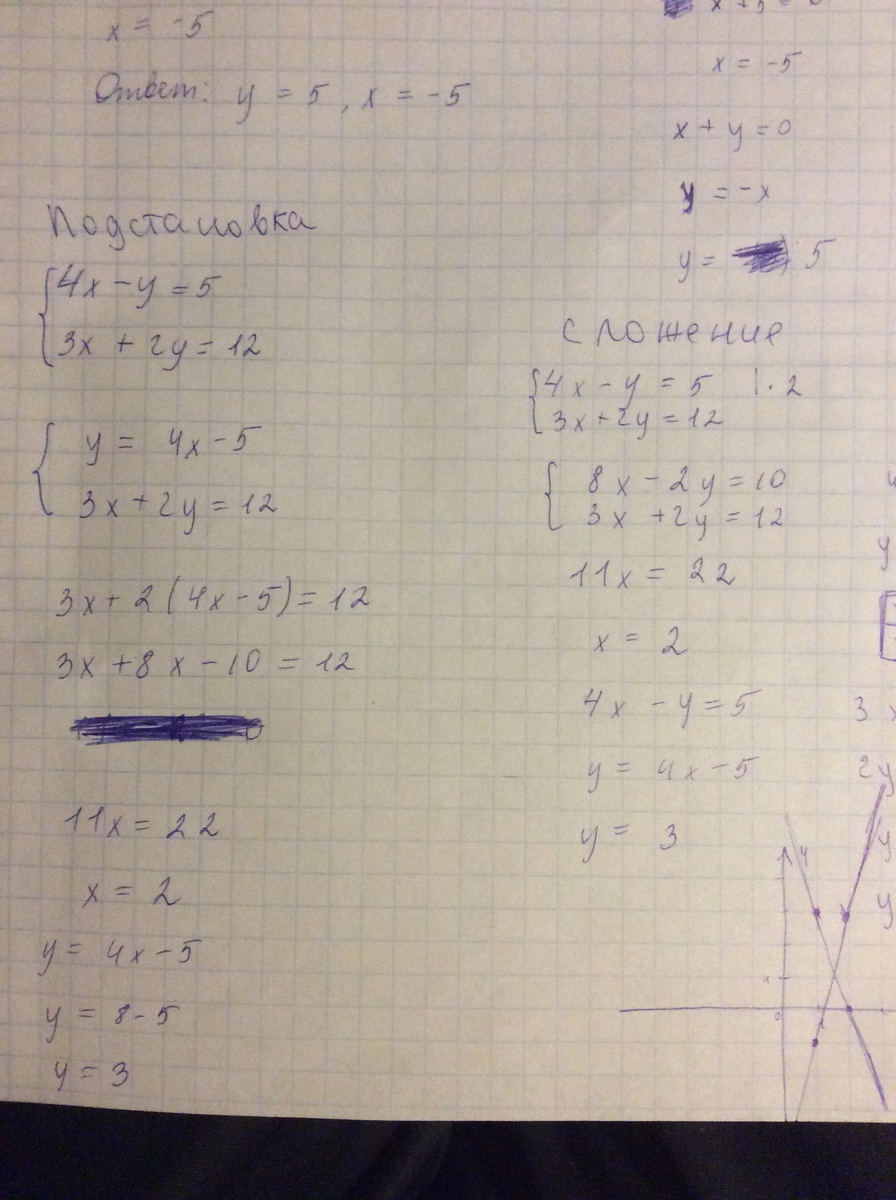 x = -5
Ответ: y = 5, x = -5
Подстановка
4x - y = 5
3x + 2y = 12
y = 4x - 5
3x + 2y = 12
3x + 2(4x - 5) = 12
3x + 8x - 10 = 12
11x = 22
x = 2
y = 4x - 5
y = 8 - 5
y = 3
x = -5
x + y = 0
y = -x
y = 5
Сложение
4x - y = 5 | · 2
3x + 2y = 12
8x - 2y = 10
3x + 2y = 12
11x = 22
x = 2
4x - y = 5
y = 4x - 5
y = 3
y
3
2y
y
y
y
1
0
1